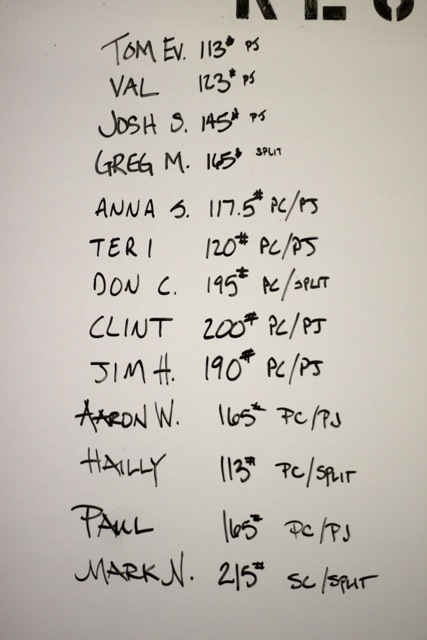 TOM EV. 113# PJ
VAL 123# PJ
JOSH S. 145# PJ
GREG M. 165# SPLIT
ANNA S. 117.5# PC/PJ
TERI 120# PC/PJ
DON C. 195# PC/SPLIT
CLINT 200# PC/PJ
JIM H. 190# PC/PJ
AARON W. 165# PC/PJ
HAILLY 113# PC/SPLIT
PAUL 165# PC/PJ
MARK N. 215# SC/SPLIT